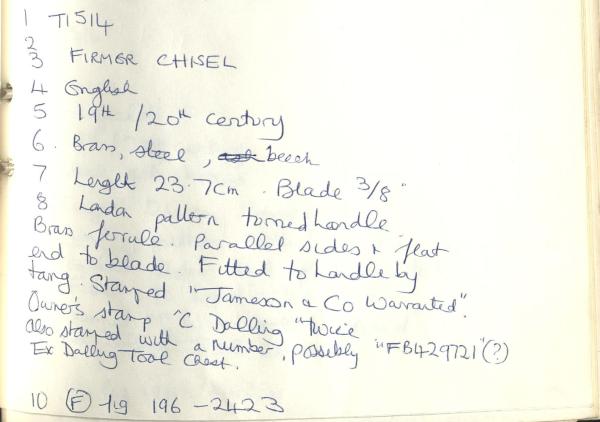 1 T1514
2
3 FIRMER CHISEL
4 English
5 19th /20th century
6. Brass, steel, ash beech
7 Length 23.7cm. Blade 3/8"
8 London pattern turned handle.
Brass ferrule. Parallel sides + flat
end to blade. Fitted to handle by
tang. Stamped "Jameson & Co Warranted".
Owner's stamp "C Dalling" twice
also stamped with a number, possibly "FB429721"(?)
Ex Dalling Tool Chest.
10 (F) fig 196 - 2423